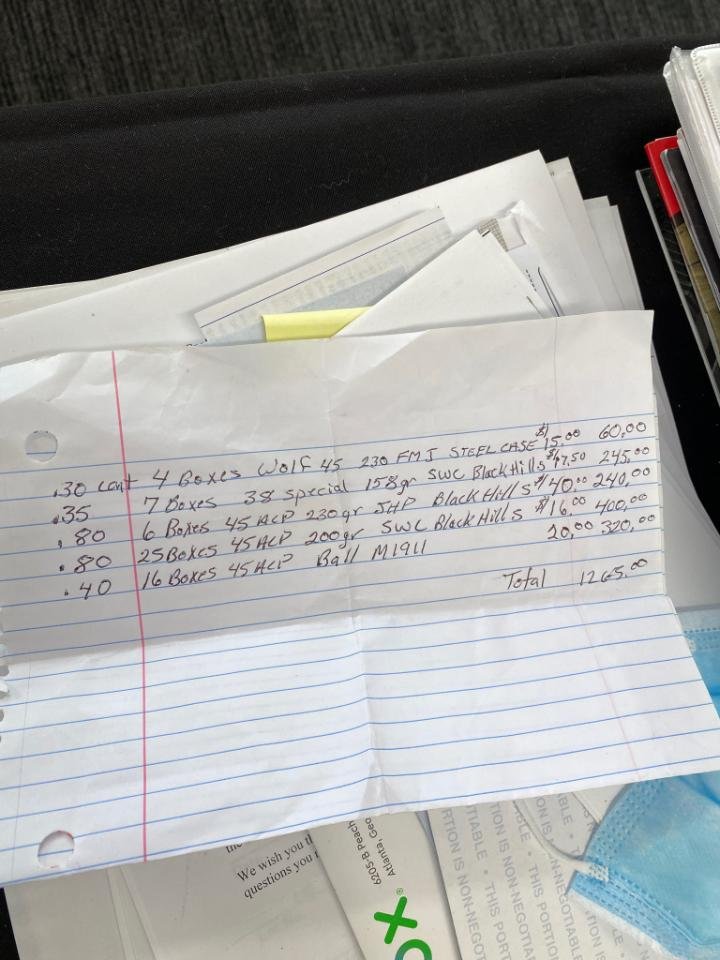 .30 cent 4 Boxes Wolf 45 230 FMJ STEEL CASE $15.00 60.00
.35 7 Boxes 38 Special 158gr SWC Black Hills $17.50 245.00
.80 6 Boxes 45 ACP 230gr JHP Black Hills $40.00 240.00
.80 25 Boxes 45 ACP 200gr SWC Black Hills $16.00 400.00
.40 16 Boxes 45 ACP Ball M1911 20.00 320.00
Total 1265.00
We wish you
questions you
6205-B Peach
Atlanta, Geo
X®
TION IS NON-NEGOTIABLE • THIS PORTION
RTION IS NON-NEGOT
TIABLE • THIS PORT
BLE • THIS PORTION
ION IS NON-NEGOTIA